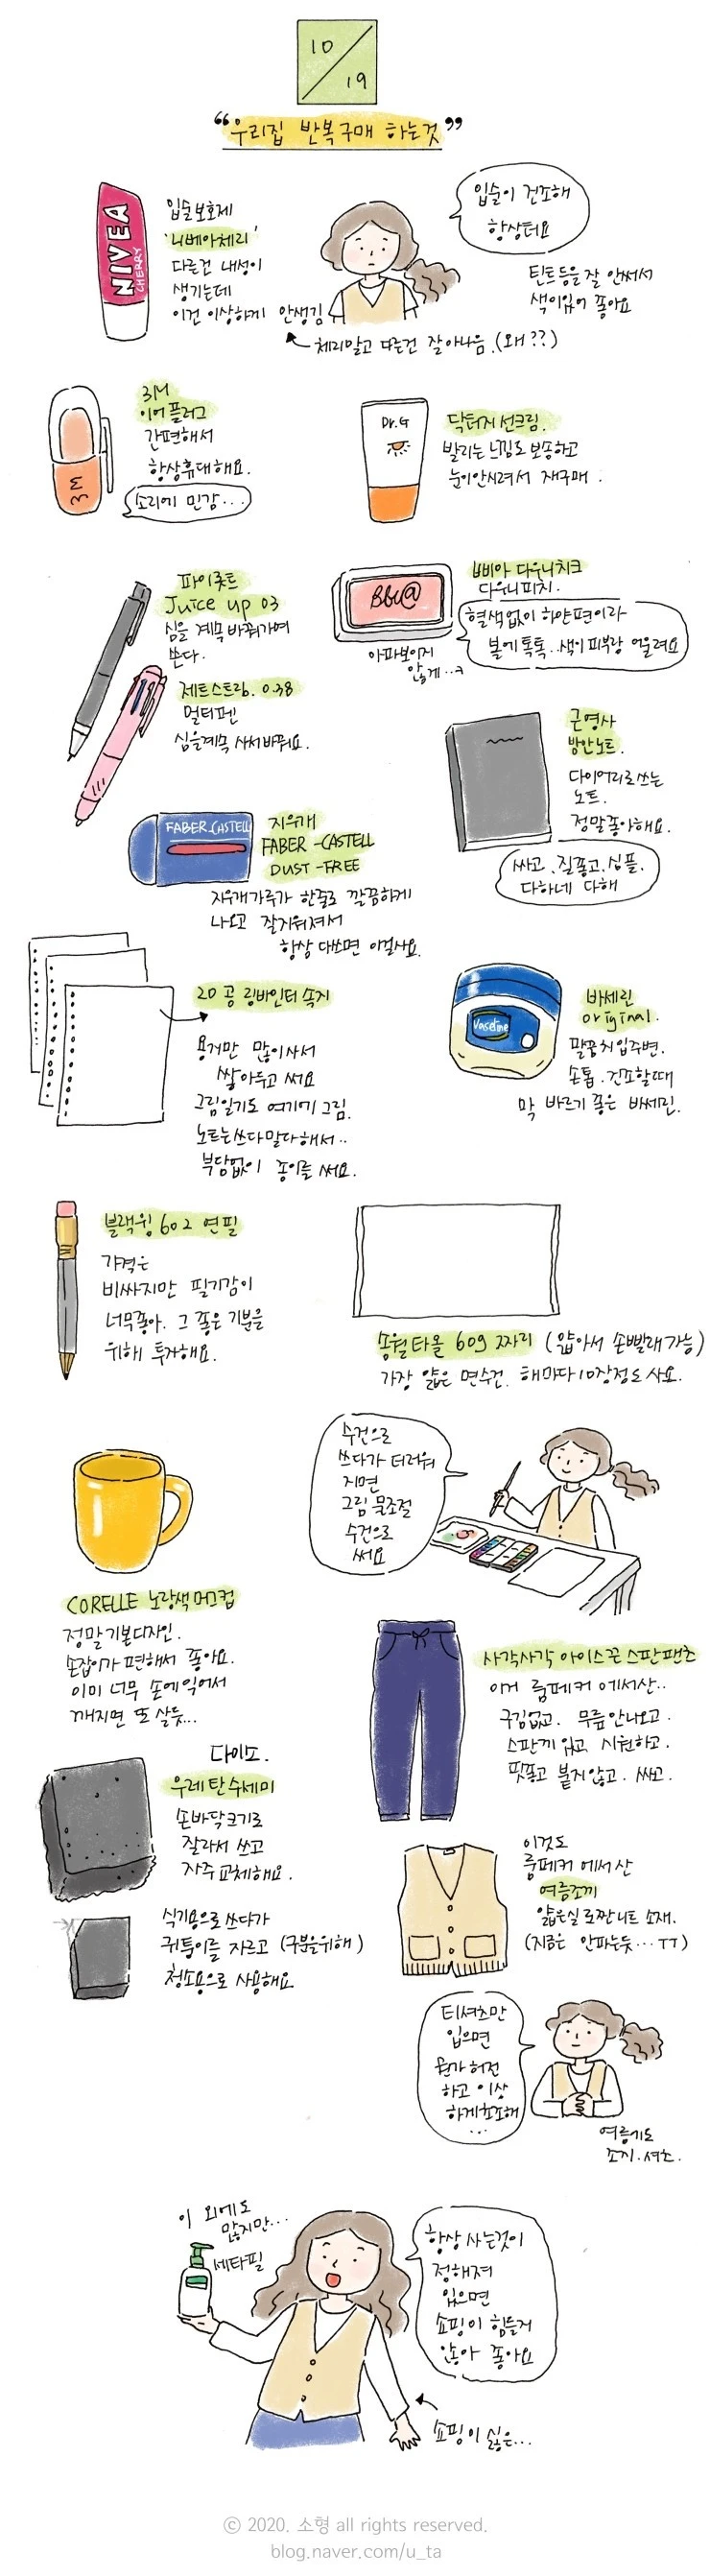 10
19
"우리집 반복구매 하는것"
NIVEA
CHERRY
입술보호제
'니베아체리'
다른건 내성이
생기는데
이건 이상하게 안생김
체리말고 다른건 잘 아나음. (왜??)
입술이 건조해
항상터요
틴트등을 잘 안써서
색이있어 좋아요
3M
3M
이어플러그
간편해서
항상휴대해요.
소리에 민감...
Dr.G
닥터지 선크림.
발리는 느낌도 보송하고
눈이안시려서 재구매.
파이롯트
Juice up 03
심을 계속 바꿔가며
쓴다.
제트스트림. 0.38
멀티펜
심을계속 사서바꿔요.
삐아 다우니치크
다우니피치.
혈색없이 하얀편이라
볼에 톡톡..색이 피부랑 어울려요
아파보이지
않게..
근영사
방안노트.
다이어리로쓰는
노트.
정말좋아해요.
싸고. 질좋고. 심플.
다하네 다해
FABER-CASTELL
지우개
FABER-CASTELL
DUST-FREE
지우개가루가 한줄로 깔끔하게
나오고 잘지워져서
항상 다쓰면 이걸사요.
20공 링바인더 속지
용지만 많이사서
쌓아두고 써요
그림일기도 여기에 그림.
노트는쓰다말다해서..
부담없이 종이를 써요.
Vaseline
바세린
original.
팔꿈치입주변.
손톱. 건조할때
막 바르기 좋은 바세린.
블랙윙 602 연필
가격은
비싸지만 필기감이
너무좋아. 그 좋은 기분을
위해 투자해요.
송월타올 60g 짜리 (얇아서 손빨래가능)
가장 얇은 면수건. 해마다10장정도 사요.
수건으로
쓰다가 더러워
지면
그림 물조절
수건으로
써요
CORELLE 노랑색 머그컵
정말기본디자인.
손잡이가 편해서 좋아요.
이미 너무 손에익어서
깨지면 또 살듯...
사각사각 아이스끈 스판팬츠
이거 룸페커 에서산..
구김없고. 무릎안나오고.
스판끼있고 시원하고.
핏좋고 붙지않고. 싸고.
다이소.
우레탄수세미
손바닥크기로
잘라서 쓰고
자주 교체해요.
식기용으로 쓰다가
귀퉁이를 자르고 (구분을위해)
청소용으로 사용해요
이것도
룸페커 에서산
여름조끼
얇은실로짠 니트 소재.
(지금은 안파는듯...ㅠㅠ)
티셔츠만
입으면
뭔가 허전
하고 이상
하게초조해
...
여름에도
조끼.셔츠.
이 외에도
많지만...
세타필
항상 사는것이
정해져
있으면
쇼핑이 힘들지
않아 좋아요
쇼핑이 싫은...
© 2020. 소형 all rights reserved.
blog.naver.com/u_ta